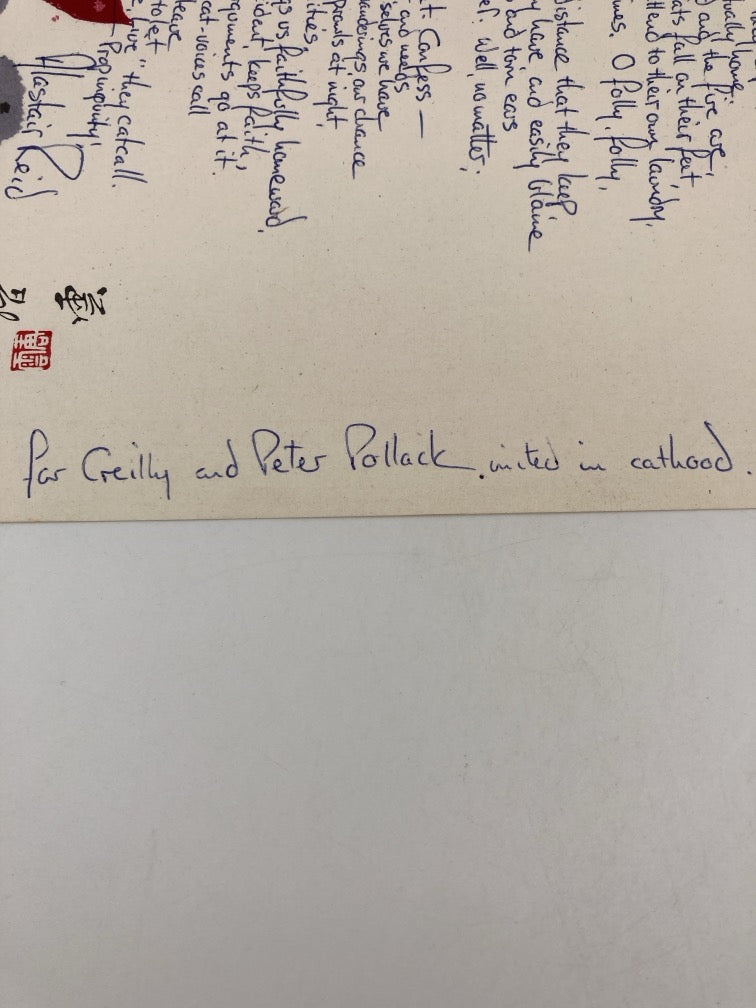 home:
and the fire are,
fall on their feet
to their own laundry,
O folly, folly,
distance that they keep
have, and easily blame
and torn ears
Well, no matter;
Confess —
and needs
selves we have
wanderings our chance
prowls at night,
us, faithfully, homeward,
keeps faith,
go at it.
cat-voices call
leave
to let
live" they catcall.
Propinquity!
Alastair Reid
for Creilly and Peter Pollack. united in cathood.